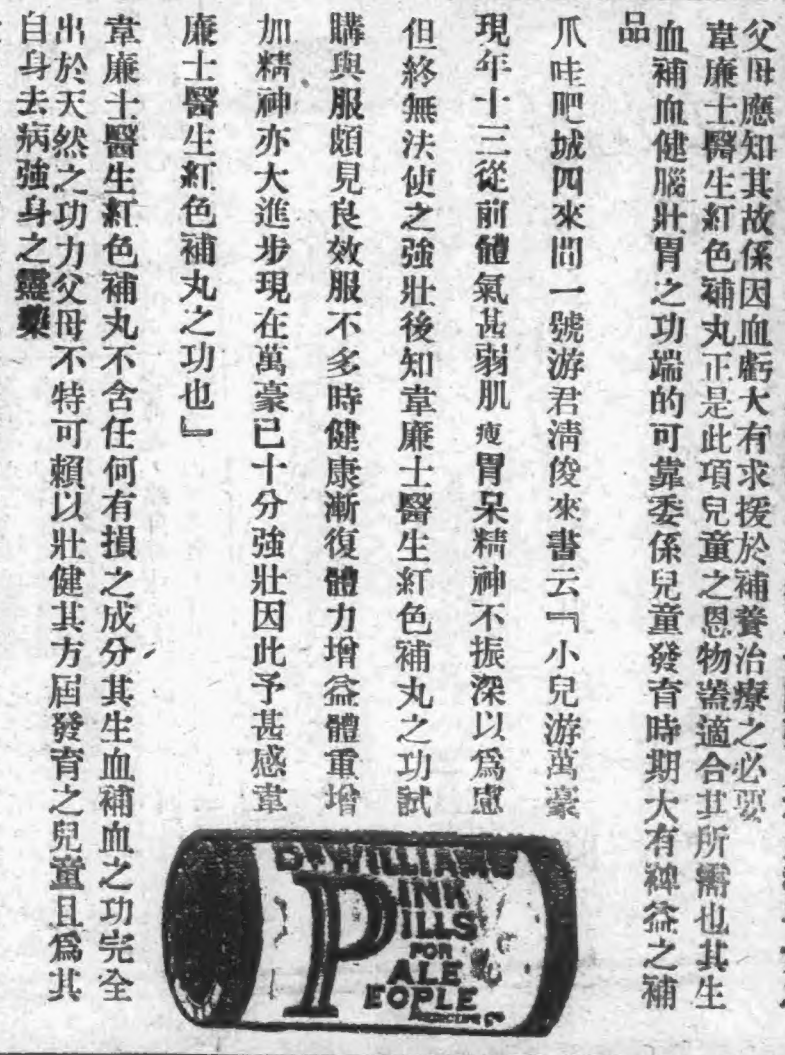 父母應知其故係因血虧大有求援於補養治療之必要
韋廉士醫生紅色補丸正是此項兒童之恩物蓋適合其所需也其生
血補血健腦壯胃之功端的可靠委係兒童發育時期大有裨益之補
品
爪哇吧城四來間一號游君清俊來書云『小兒游萬豪
現年十三從前體氣甚弱肌瘦胃呆精神不振深以爲慮
但終無法使之強壯後知韋廉士醫生紅色補丸之功試
購與服頗見良效服不多時健康漸復體力增益體重增
加精神亦大進步現在萬豪已十分強壯因此予甚感韋
廉士醫生紅色補丸之功也』
韋廉士醫生紅色補丸不含任何有損之成分其生血補血之功完全
出於天然之功力父母不特可賴以壯健其方屆發育之兒童且爲其
自身去病強身之靈藥
DR WILLIAMS
PINK
PILLS
FOR
PALE
PEOPLE
MEDICINE Co